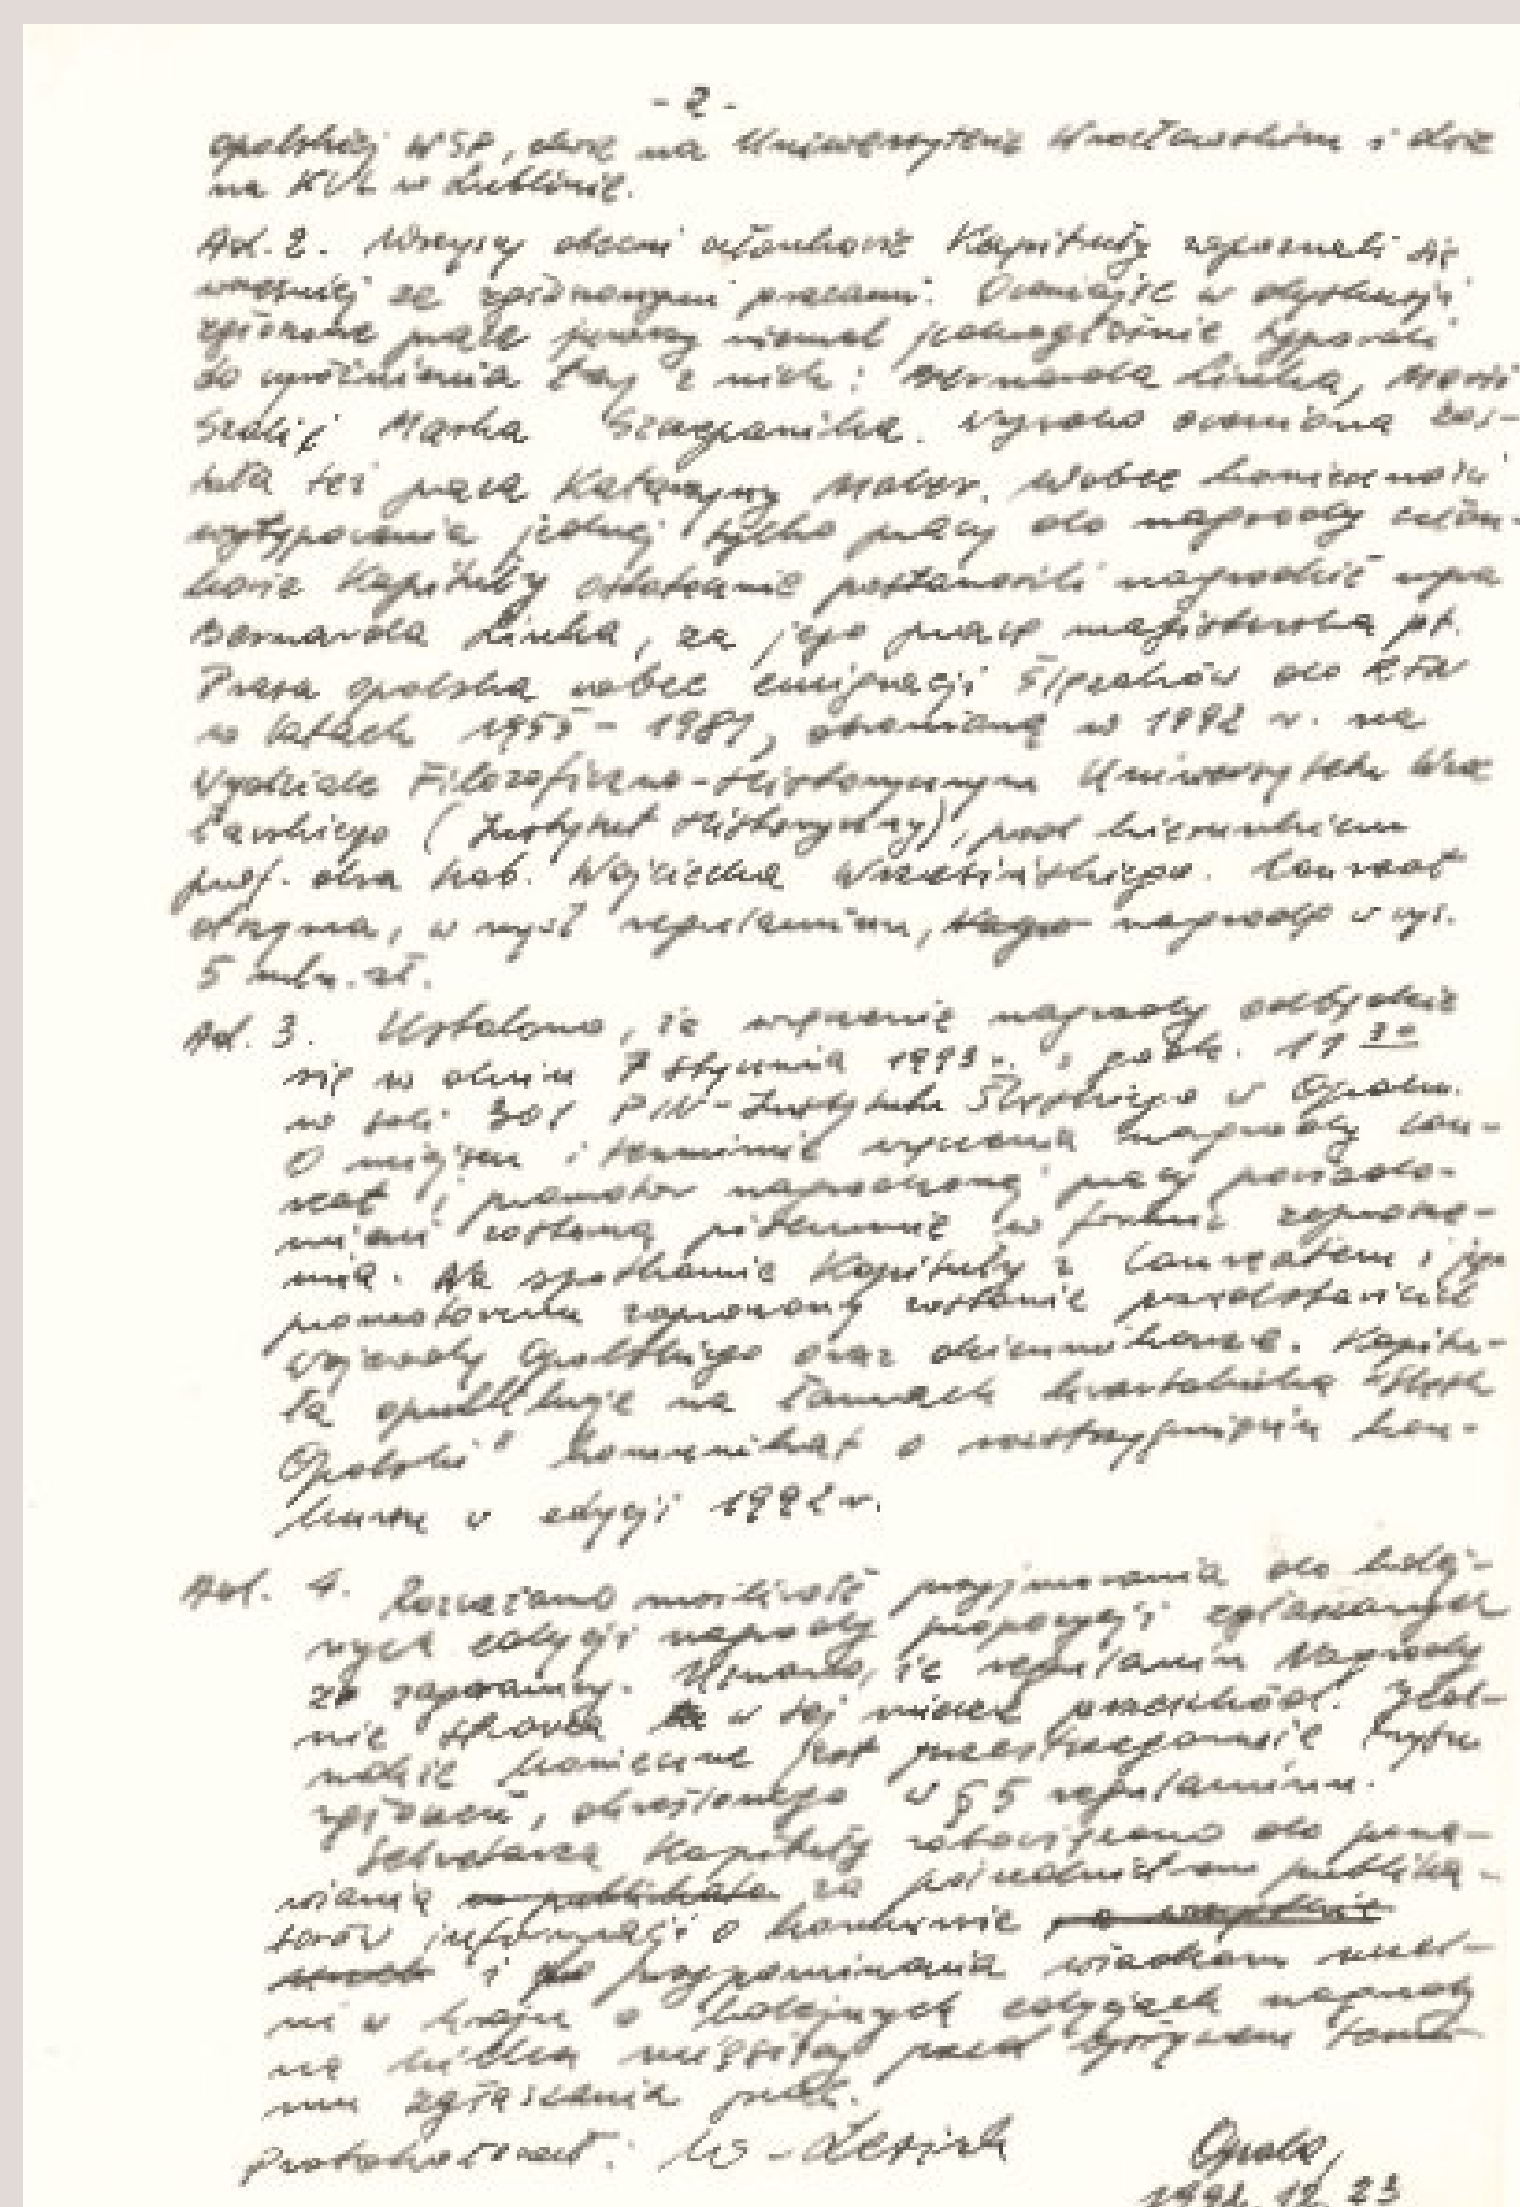 - 2 -
opolskiej WSP, dwie na Uniwersytecie Wrocławskim i dwie
na KUL w Lublinie.
Ad. 2. Wszyscy obecni członkowie Kapituły zapoznali się
wcześniej ze zgłoszonymi pracami. Oceniając w dyskusji
zgłoszone prace jurorzy niemal jednogłośnie typowali
do wyróżnienia trzy z nich: Bernarda Linka, Marii
Szeli i Marka Szczepanika. Wysoko oceniona zos-
tała też praca Katarzyny Maler. Wobec konieczności
wytypowania jednej tylko pracy do nagrody człon-
kowie Kapituły ostatecznie postanowili nagrodzić mgra
Bernarda Linka, za jego pracę magisterską pt.
Prasa opolska wobec emigracji Ślązaków do RFN
w latach 1955-1981, obronioną w 1992 r. na
Wydziale Filozoficzno-Historycznym Uniwersytetu Wro
cławskiego (Instytut Historyczny), pod kierunkiem
prof. dra hab. Wojciecha Wrzesińskiego. Laureat
otrzyma, w myśl regulaminu, nagrodę w wys.
5 mln. zł.
Ad. 3. Ustalono, że wręczenie nagrody odbędzie
się w dniu 7 stycznia 1993 r. o godz. 11
w sali 301 PIN-Instytutu Śląskiego w Opolu.
O miejscu i terminie wręczenia nagrody lau-
reat i promotor nagrodzonej pracy powiado-
mieni zostaną pisemnie w formie zaprosze-
nia. Na spotkanie Kapituły z laureatem i jego
promotorem zaproszony zostanie przedstawiciel
Wojewody Opolskiego oraz dziennikarze. Kapitu-
ła opublikuje na łamach kwartalnika "Śląsk
Opolski" komunikat o rozstrzygnięciu kon-
kursu w edycji 1992 r.
Ad. 4. Rozważano możliwość przyjmowania do kolej-
nych edycji nagrody propozycji zgłaszanych
z zagranicy. Uznano, że regulamin Nagrody
nie stwarza w tej mierze przeszkód. Jed-
nakże konieczne jest przestrzeganie trybu
zgłoszeń, określonego w § 5 regulaminu.
Sekretarza Kapituły zobowiązano do pona-
wiania za pośrednictwem publika-
torów informacji o konkursie
i przypominania władzom uczel-
ni w kraju o kolejnych edycjach nagrody
na kilka miesięcy przed upływem termi-
nu zgłaszania prac.
Protokołował: W. Lesiuk
Opole,
1992.12.23